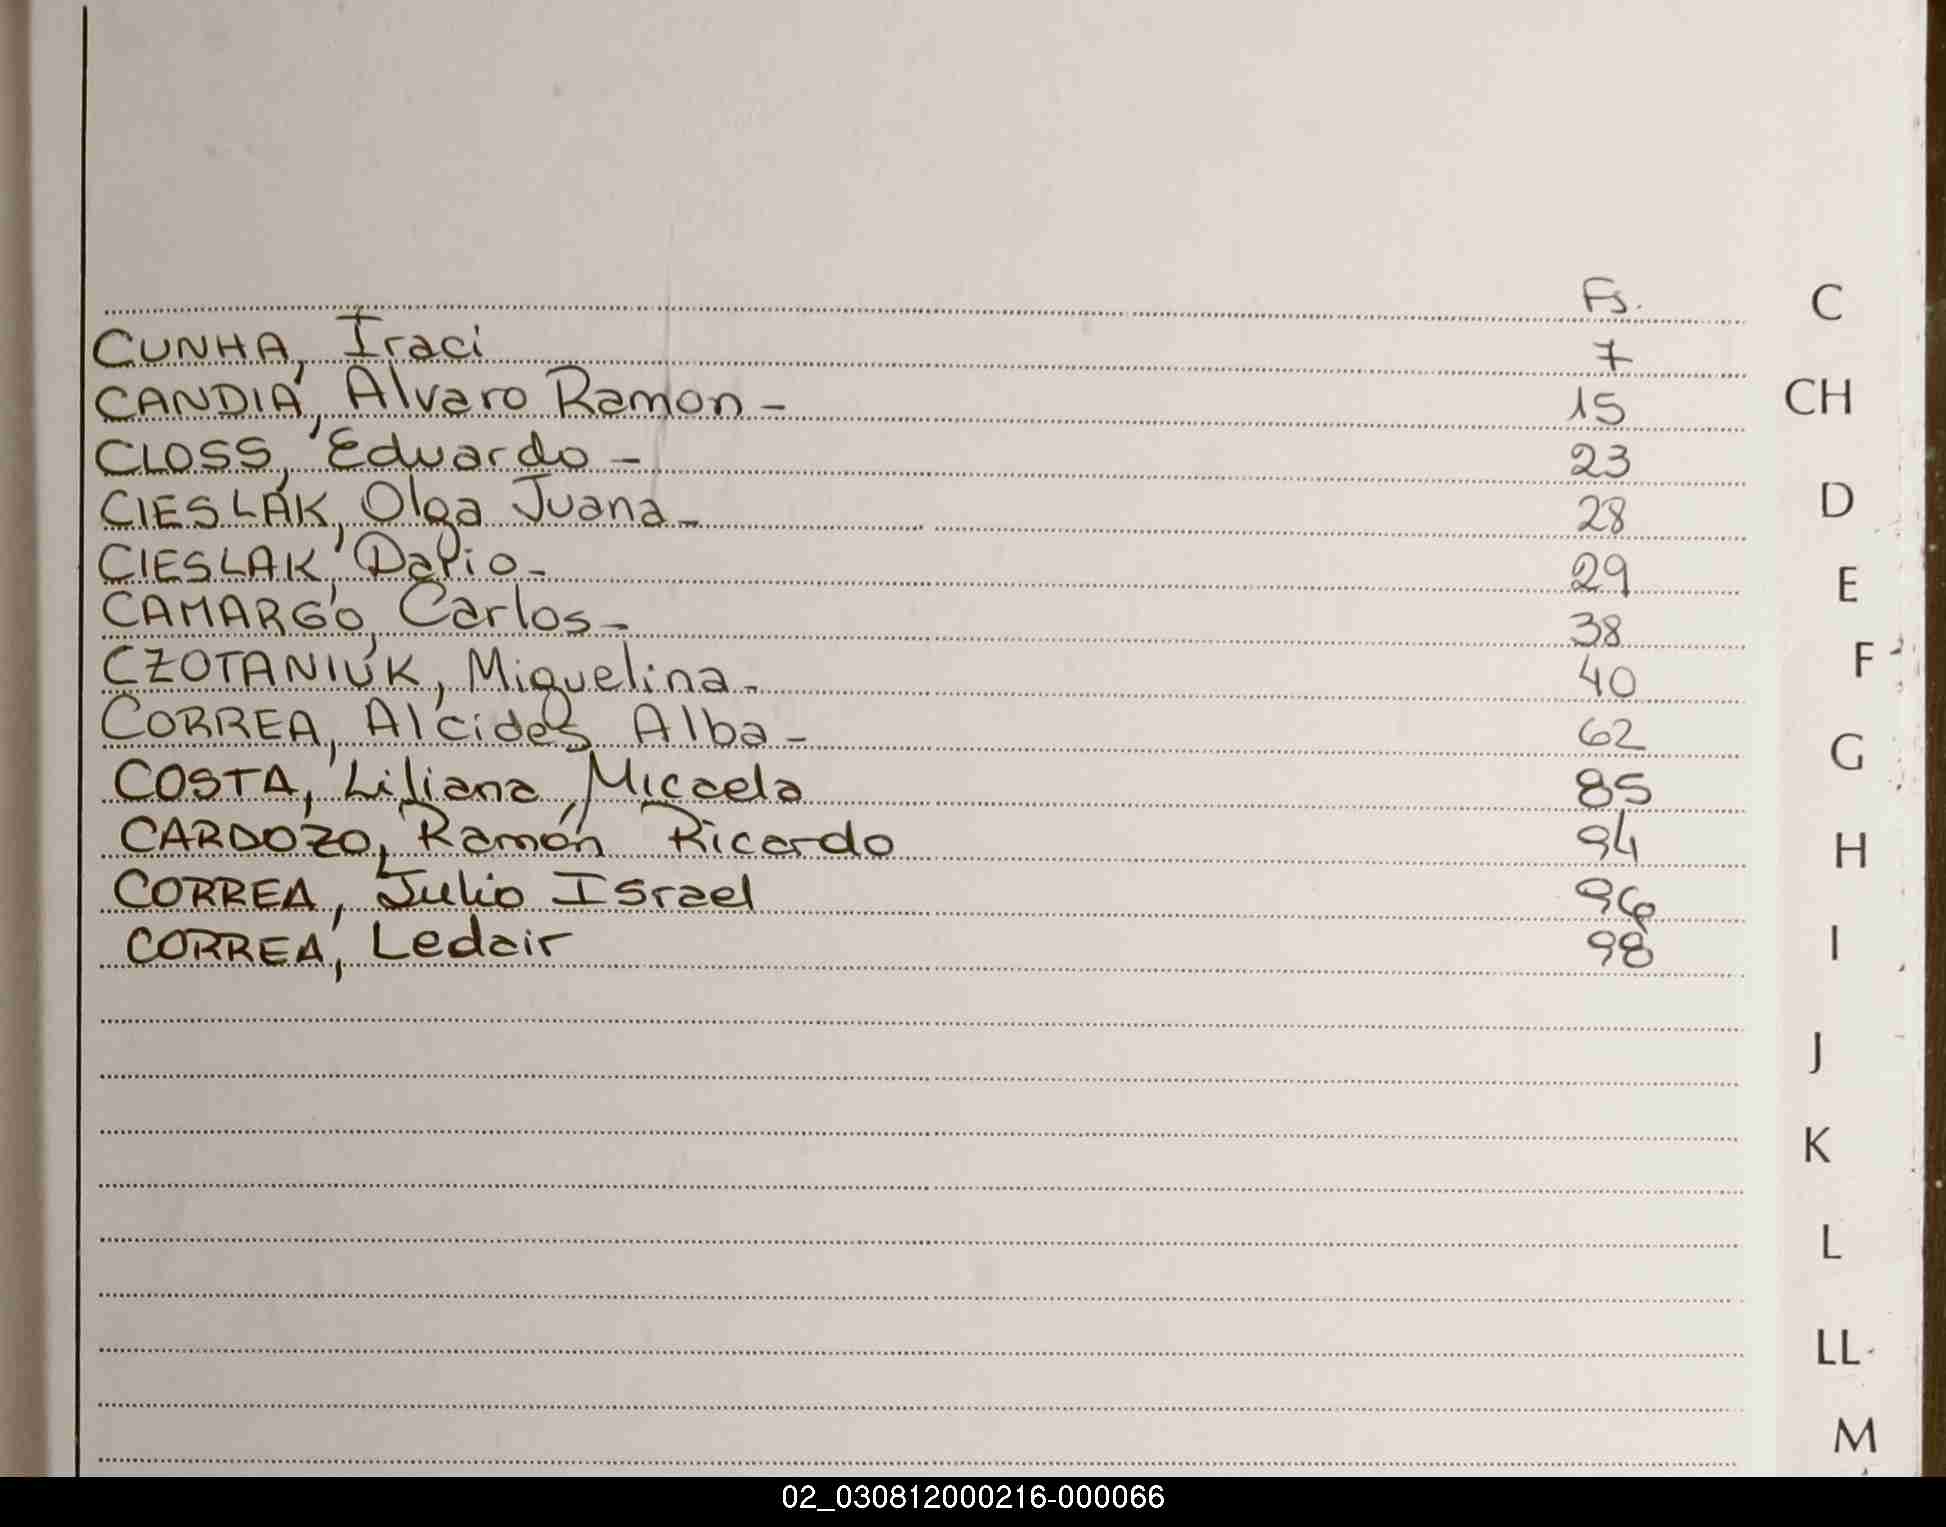 Fs. C
CUNHA, Iraci 7
CANDIA, Alvaro Ramon - 15 CH
CLOSS, Eduardo - 23
CIESLAK, Olga Juana - 28 D
CIESLAK, Dario - 29 E
CAMARGO, Carlos - 38
CZOTANIUK, Miguelina - 40 F
CORREA, Alcides Alba - 62 G
COSTA, Liliana Micaela 85
CARDOZO, Ramón Ricardo 94 H
CORREA, Julio Israel 96
CORREA, Ledair 98 I
J
K
L
LL
M
02_030812000216-000066